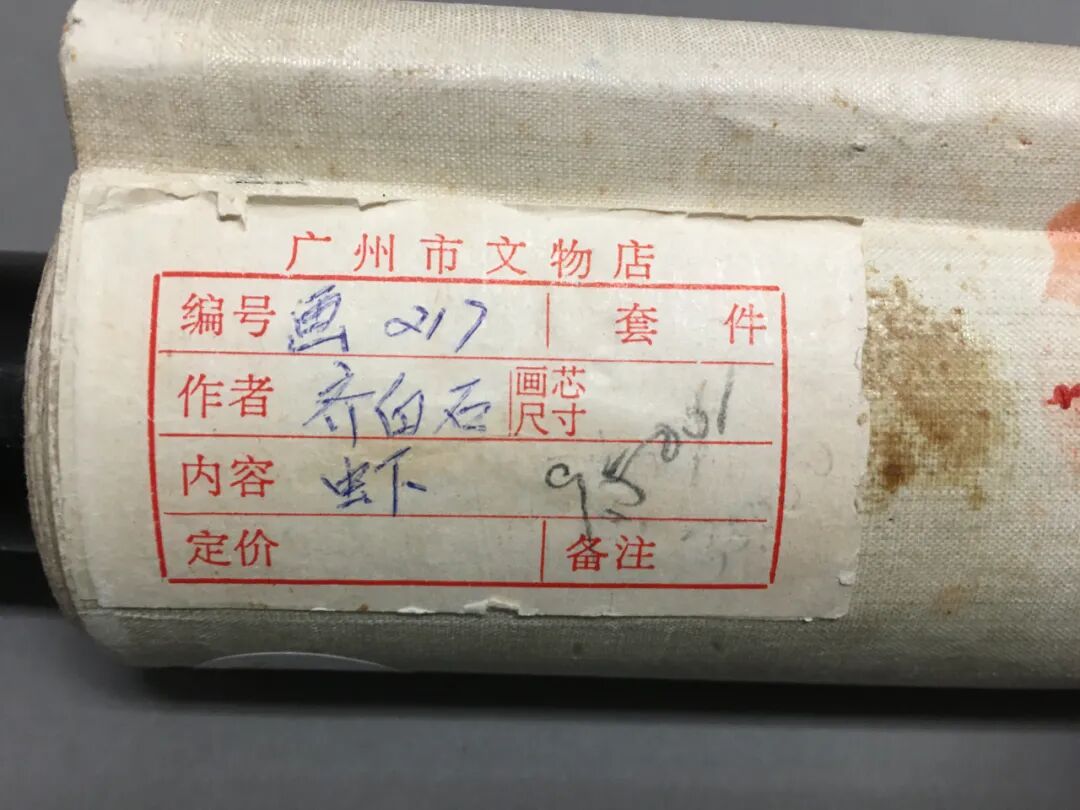 广州市文物店
编号 画 217 套 件
作者 齐白石 画芯尺寸
内容 虾
定价 备注